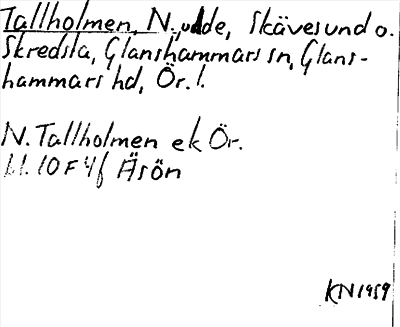 Tallholmen, N., udde, Skävesund o.
Skredsta, Glanshammars sn, Glans-
hammars hd, Ör. l.
N. Tallholmen ek Ör.
bl. 10 F 4f Äsön
KN 1959